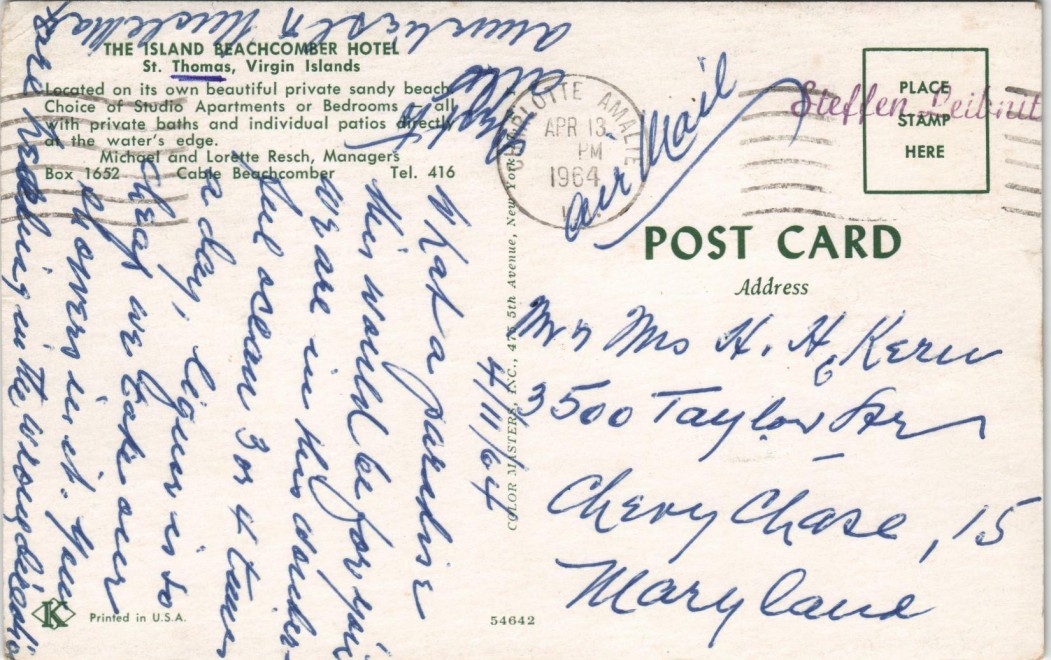 THE ISLAND BEACHCOMBER HOTEL
St. Thomas, Virgin Islands
Located on its own beautiful private sandy beach
Choice of Studio Apartments or Bedrooms — all
with private baths and individual patios directly
at the water's edge.
Michael and Lorette Resch, Managers
Box 1652 Cable Beachcomber Tel. 416
4/11/64
What a paradise
this would be for you
We are in this wonder-
ful ocean 3 or 4 times
a day, liquor is so
cheap we take our
showers in it. Your
are heading in the wrong direction
CHARLOTTE AMALIE
APR 13
PM
1964
V.I.
Air Mail
PLACE
STAMP
HERE
Steffen
POST CARD
Address
Mr n Mrs H. H. Kern
3500 Taylor Str
Chevy Chase, 15
Maryland
COLOR MASTERS, INC., 475 5th Avenue, New York
K
Printed in U.S.A.
54642